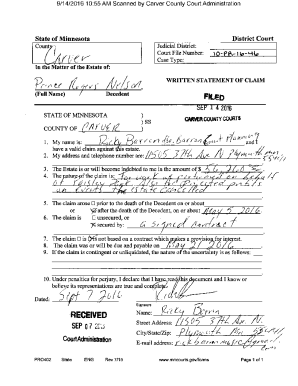 9/14/2016 10:55 AM Scanned by Carver County Court Administration
State of Minnesota
District Court
County
Carver
Judicial District:
Court File Number: 10-PR-16-46
Case Type:
In the Matter of the Estate of:
Prince Rogers Nelson
(Full Name) Decedent
WRITTEN STATEMENT OF CLAIM
FILED
SEP 14 2016
CARVER COUNTY COURTS
STATE OF MINNESOTA )
) SS
COUNTY OF CARVER )
1. My name is Ricky Barron and I
have a valid claim against this estate.
2. My address and telephone number are: 11505 37th Ave N Plymouth
3. The Estate is or will become indebted to me in the amount of $
4. The nature of the claim is:
5. The claim arose prior to the death of the Decedent on or about
or after the death of the Decedent, on or about May 5 2016
6. The claim is unsecured, or
secured by: a signed contract
7. The claim is not based on a contract which makes a provision for interest.
8. The claim was or will be due and payable on May 21 2016
9. If the claim is contingent or unliquidated, the nature of the uncertainty is as follows:
10. Under penalties for perjury, I declare that I have read this document and I know or
believe its representations are true and complete.
Dated: Sept 7 2016
Signature
Name: Ricky Barron
Street Address: 11505 37th Av N.
City/State/Zip: Plymouth Mn
E-mail address:
RECEIVED
SEP 07 2016
Court Administration
PRO402 State ENG Rev 7/15 www.mncourts.gov/forms Page 1 of 1